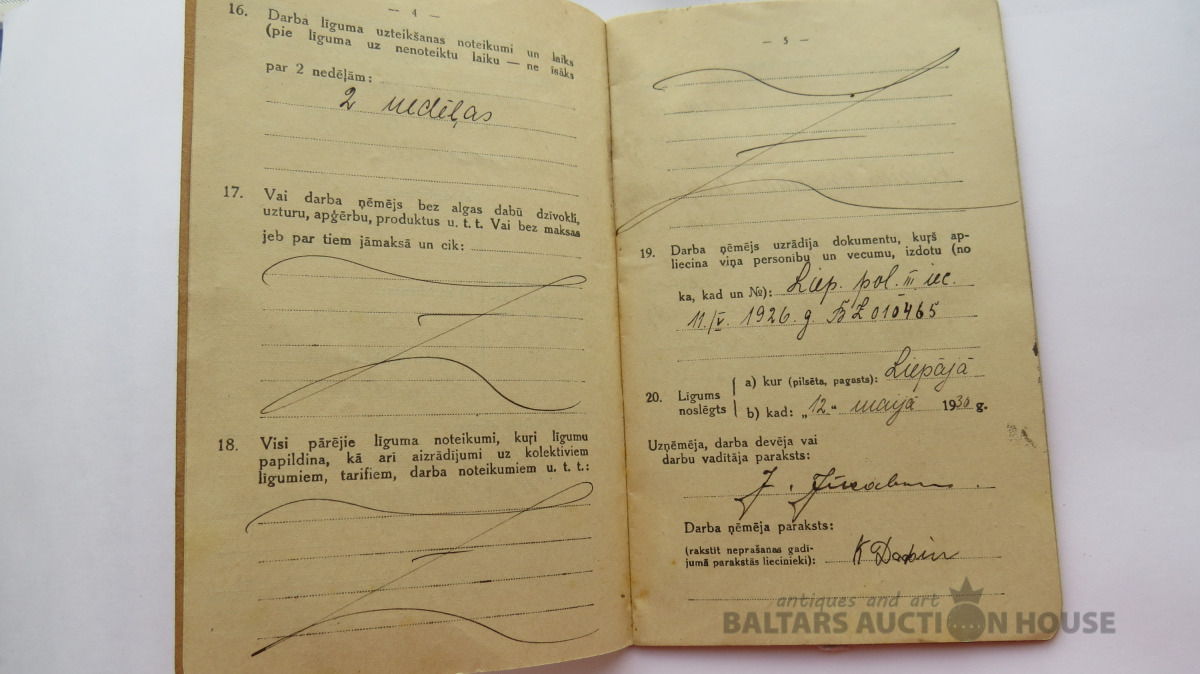 — 4 —
16. Darba līguma uzteikšanas noteikumi un laiks
(pie līguma uz nenoteiktu laiku — ne īsāks
par 2 nedēļām:
2 nedēļas
17. Vai darba ņēmējs bez algas dabū dzīvokli,
uzturu, apģērbu, produktus u. t. t. Vai bez maksas
jeb par tiem jāmaksā un cik:
18. Visi pārējie līguma noteikumi, kuŗi līgumu
papildina, kā arī aizrādījumi uz kolektiviem
līgumiem, tarifiem, darba noteikumiem u. t. t.:
— 5 —
19. Darba ņēmējs uzrādīja dokumentu, kuŗš ap-
liecina viņa personību un vecumu, izdotu (no
ka, kad un №): Liep. pol. III iec.
11./V. 1926. g. BZ 010465
20. Līgums noslēgts
a) kur (pilsēta, pagasts): Liepājā
b) kad: „12“ maijā 1930 g.
Uzņēmēja, darba devēja vai
darbu vadītāja paraksts:
J.
Darba ņēmēja paraksts:
(rakstīt neprašanas gadī-
jumā parakstās liecinieki): K
antiques and art
BALTARS AUCTION HOUSE